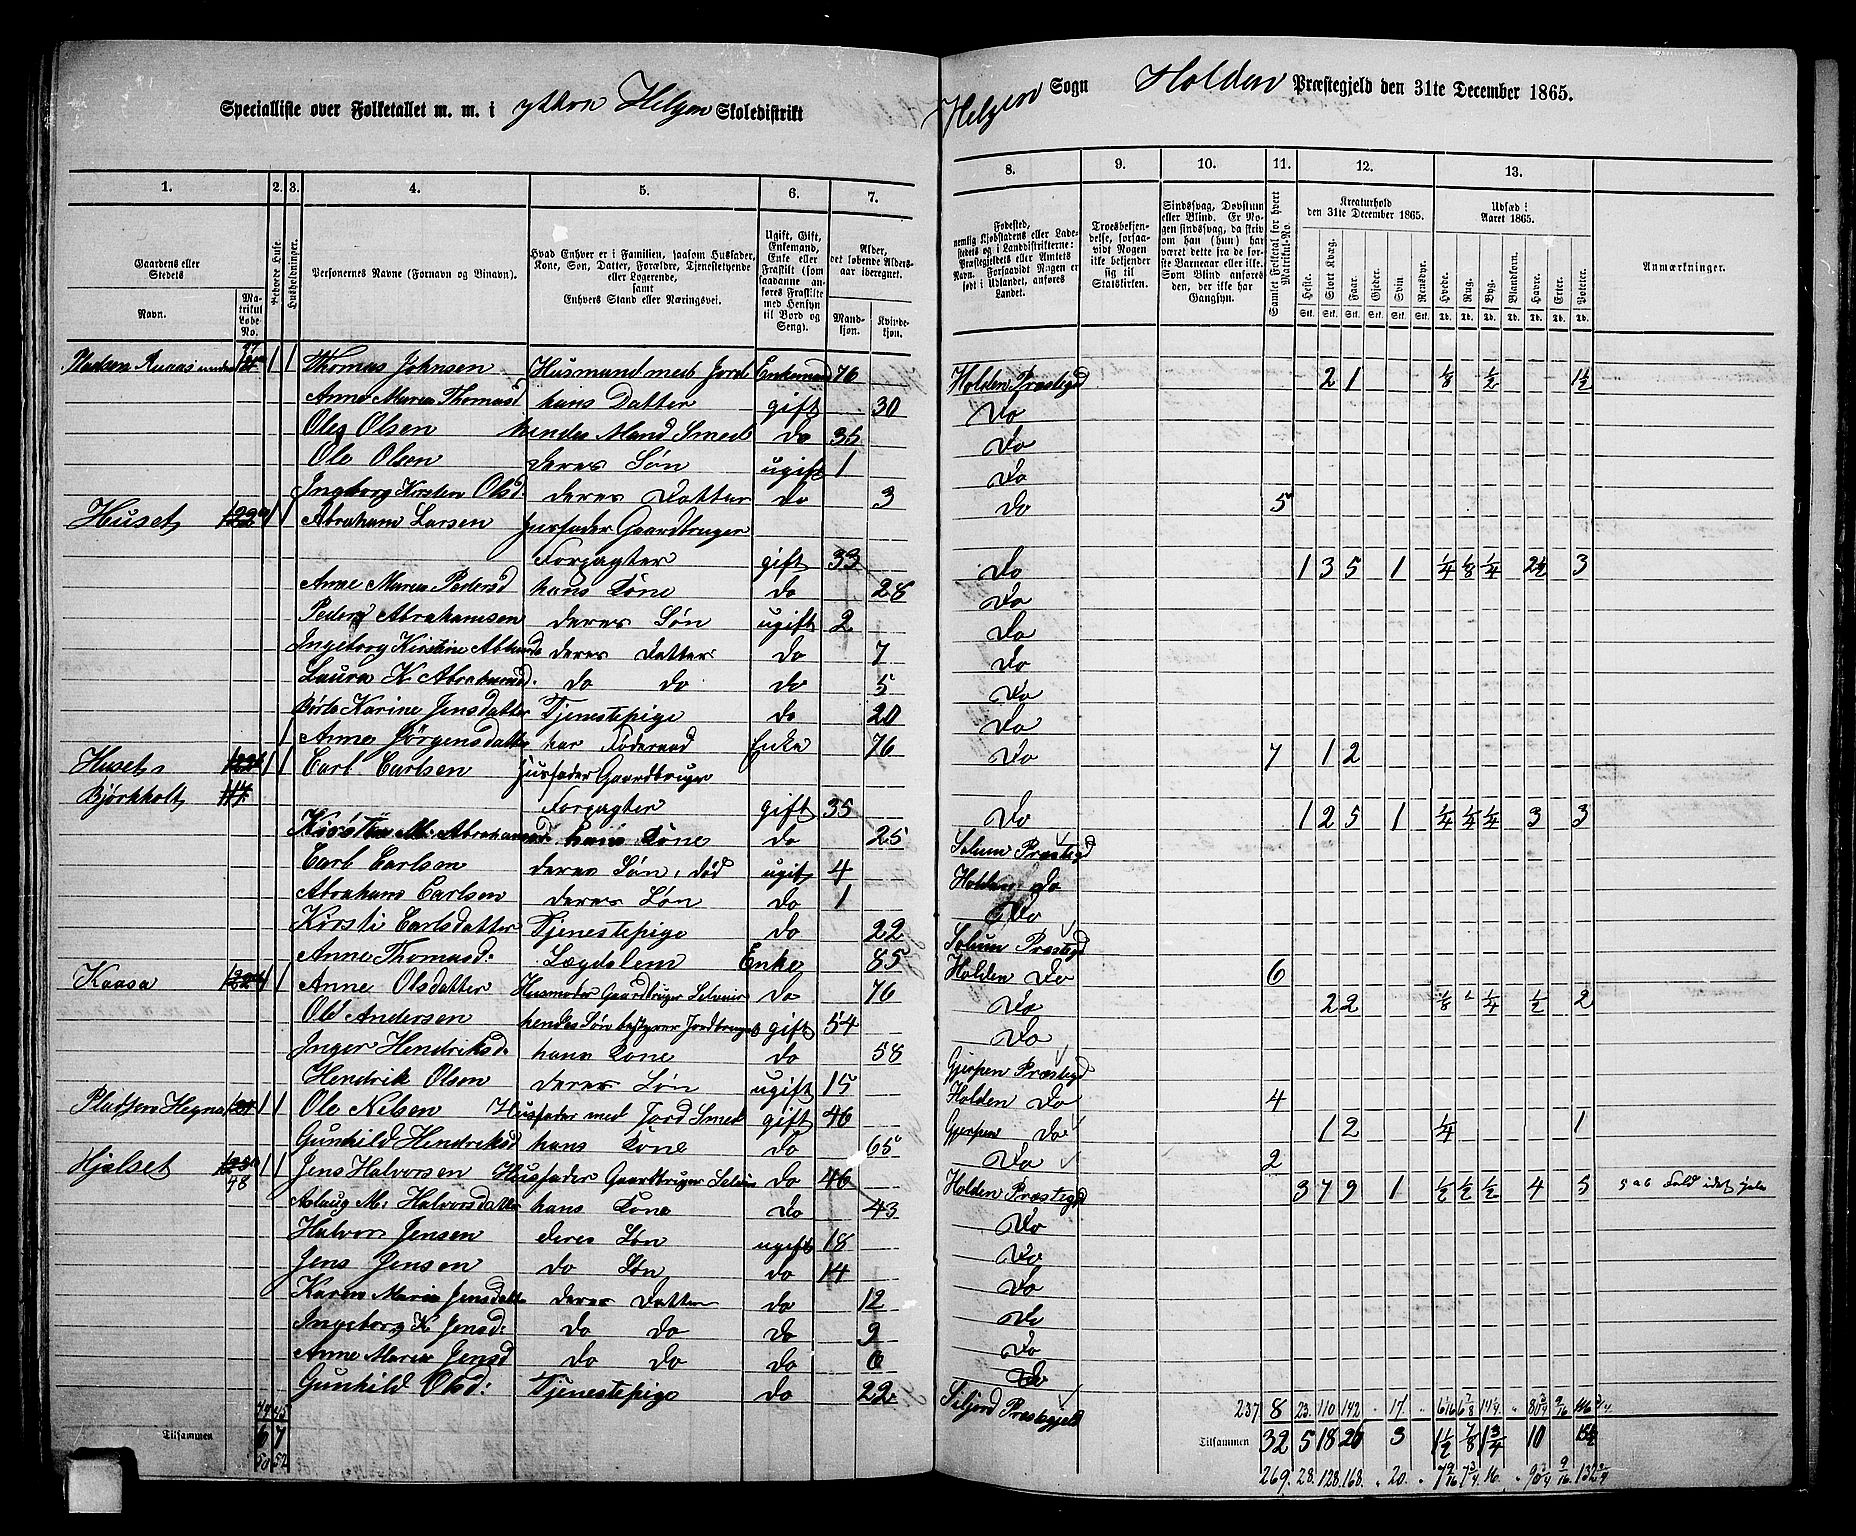 Specialliste over Folketallet m. m. i ytthre Helgen Skoledistrikt
Helgen Sogn Holden Præstegjeld den 31te December 1865.
1. 2. 3. 4. 5. 6. 7. 8. 9. 10. 11. 12. 13.
Gaardens eller Stedets
Navn.
Matrikul Løbe-No.
Beboede Huse.
Husholdninger.
Personernes Navne (Fornavn og Tilnavn).
Hvad Enhver er i Familien, saasom Husfader, Kone, Søn, Datter, Forældre, Tjenestetyende eller Logerende, samt Enhvers Stand eller Næringsvei.
Ugift, Gift, Enkemand, Enke eller Fraskilt (som saadanne anføres Fraskilte med Hensyn til Bord og Seng).
Alder, det løbende Aldersaar iberegnet.
Mandkjøn. Kvindekjøn.
Fødested, nemlig Kjøbstadens eller Ladestedets eller i Landdistrikterne: Præstegjeldets eller Amtets Navn. Forsaavidt Nogen er født i Udlandet, anføres Landet.
Troesbekjendelse, forsaavidt Nogen ikke bekjender sig til Statskirken.
Sindssvag, Døvstum eller Blind. Er Nogen sindssvag, da skriv om han (hun) har været dette fra de første Barneaar eller ikke. Som Blind anføres den, der ikke har Gangsyn.
Samlet Folketal for hvert Matrikul-No.
Kreaturhold den 31te December 1865.
Heste. Stort Kvæg. Faar. Gjeder. Svin. Rensdyr.
Udsæd i Aaret 1865.
Hvede. Rug. Byg. Blandkorn. Havre. Erter. Poteter.
Anmærkninger.
Pladsen Ruaas under 1 1 Thomas Johnsen Husmand med Jord Enkemand 76 Holden Præstegd 2 1 1/8 1/2 1 1/2
Anne Maria Thomasd hans Datter gift 30 Do
Oleg Olsen hendes Mand Smed do 35 Do
Ole Olsen deres Søn ugift 1 Do
Ingeborg Kirsten Olsd: deres Datter do 3 Do 5
Huset 122a 1 1 Abraham Larsen Husfader Gaardbruger
Forpagter gift 33 Do 1 3 5 1 1/4 1/8 1/4 2 1/2 3
Anne Maria Pedersd hans Kone do 28 Do
Peder Abrahamsen deres Søn ugift 2 Do
Ingeborg Kirstine deres Datter do 7 Do
Laura K. Abrahamsd. do do do 5 Do
Børte Karine Jensdatter Tjenestepige do 20 Do
1 Anne Jørgensdatter har Føderaad Enke 76 Do 7 1 2
Huset 1 1 Carl Carlsen Husfader Gaardbruger
Bjørkholt 117
Forpagter gift 35 Do 1 2 5 1 1/4 1/4 1/4 3 3
Kirsten M. Abrahamsd hans Kone do 25 Solum Præstegd
Carl Carlsen deres Søn, død ugift 4 Holden Do
Abraham Carlsen deres Søn do 1 Do
Kirsti Carlsdatter Tjenestepige do 22 Solum Præstegd
Anne Thomasd: Lægdslem Enke 85 Holden Do 6
Kaasa 1 1 Anne Olsdatter Husmoder Gaardbruger Selveier do 76 Do 2 2 1/8 1/4 1/2 2
Ole Andersen hendes Søn bestyrer Jordbruget gift 54 Do
Inger Hendriksd. hans Kone do 58 Gjerpen Præstegd
Hendrik Olsen deres Søn ugift 15 Holden Do 4
Pladsen Hegna 1 1 Ole Nilsen Husfader med Jord Smed gift 46 Gjerpen Do 1 2 1/4 1
Gunhild Hendriksd hans Kone do 65 Do 2
Hjelset 1 1 Jens Halvorsen Husfader Gaardbruger Selveier do 46 Holden Præstegd 3 7 9 1 1/2 1/2 1/2 4 5
48 Aslaug M: Halvorsdatter hans Kone do 43 Do
Halvor Jensen deres Søn ugift 18 Do
Jens Jensen do Søn do 14 Do
Karen Maria Jensdatter deres Datter do 12 Do
Ingeborg K Jensd: do do do 9 Do
Anne Maria Jensd do do do 6 Do
Gunhild Olsd: Tjenestepige do 22 Siljord Præstegjeld
44 45 237 8 23 110 142 17
Tilsammen 6 7 Tilsammen 32 5 18 26 3 1 1/2 7/8 1 3/4 10 15 1/2
50 52 269. 28. 128. 168. 20. 7 9/16 7 3/4 16. 90 3/4 9/16 132 3/4